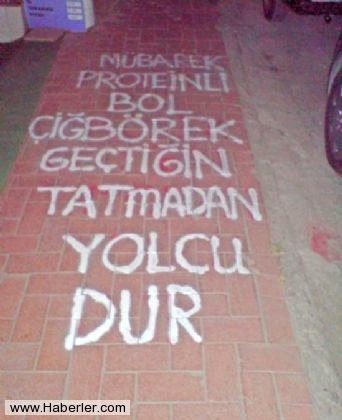 MÜBAREK
PROTEİNLİ
BOL
ÇİĞBÖREK
GEÇTİĞİN
TATMADAN
YOLCU
DUR
www.Haberler.com